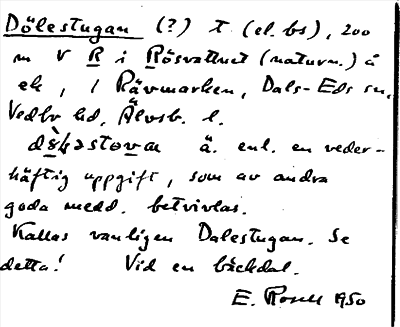 Dölestugan (?) T (el. bs), 200
m V R i Rösvattnet (naturn.) å
ek, / Rävmarken, Dals-Eds sn,
Vedbo hd, Älvsb. l.
ä. enl. en veder-
häftig uppgift, som av andra
goda medd. betvivlas.
Kallas vanligen Dalestugan. Se
detta! Vid en bäckdal.
E. Rosell 1950